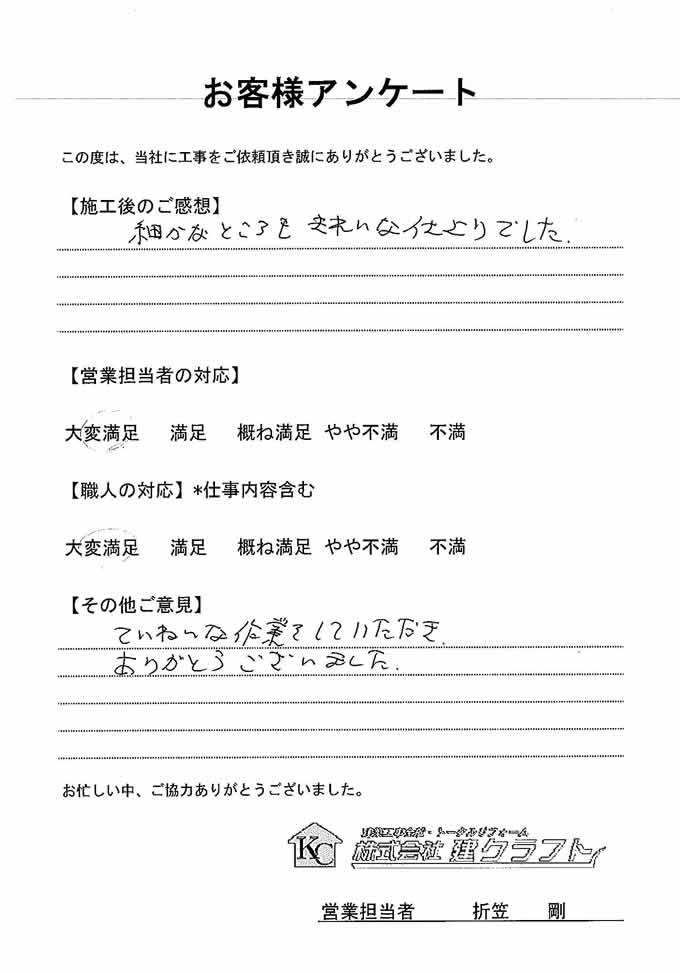 お客様アンケート
この度は、当社に工事をご依頼頂き誠にありがとうございました。
【施工後のご感想】
細かなところもきれいな仕上りでした.
【営業担当者の対応】
大変満足 満足 概ね満足 やや不満 不満
【職人の対応】*仕事内容含む
大変満足 満足 概ね満足 やや不満 不満
【その他ご意見】
ていねいな作業をしていただき.
ありがとうございました.
お忙しい中、ご協力ありがとうございました。
建築工事全般・トータルリフォーム
KC 株式会社 建クラフト
営業担当者 折笠 剛